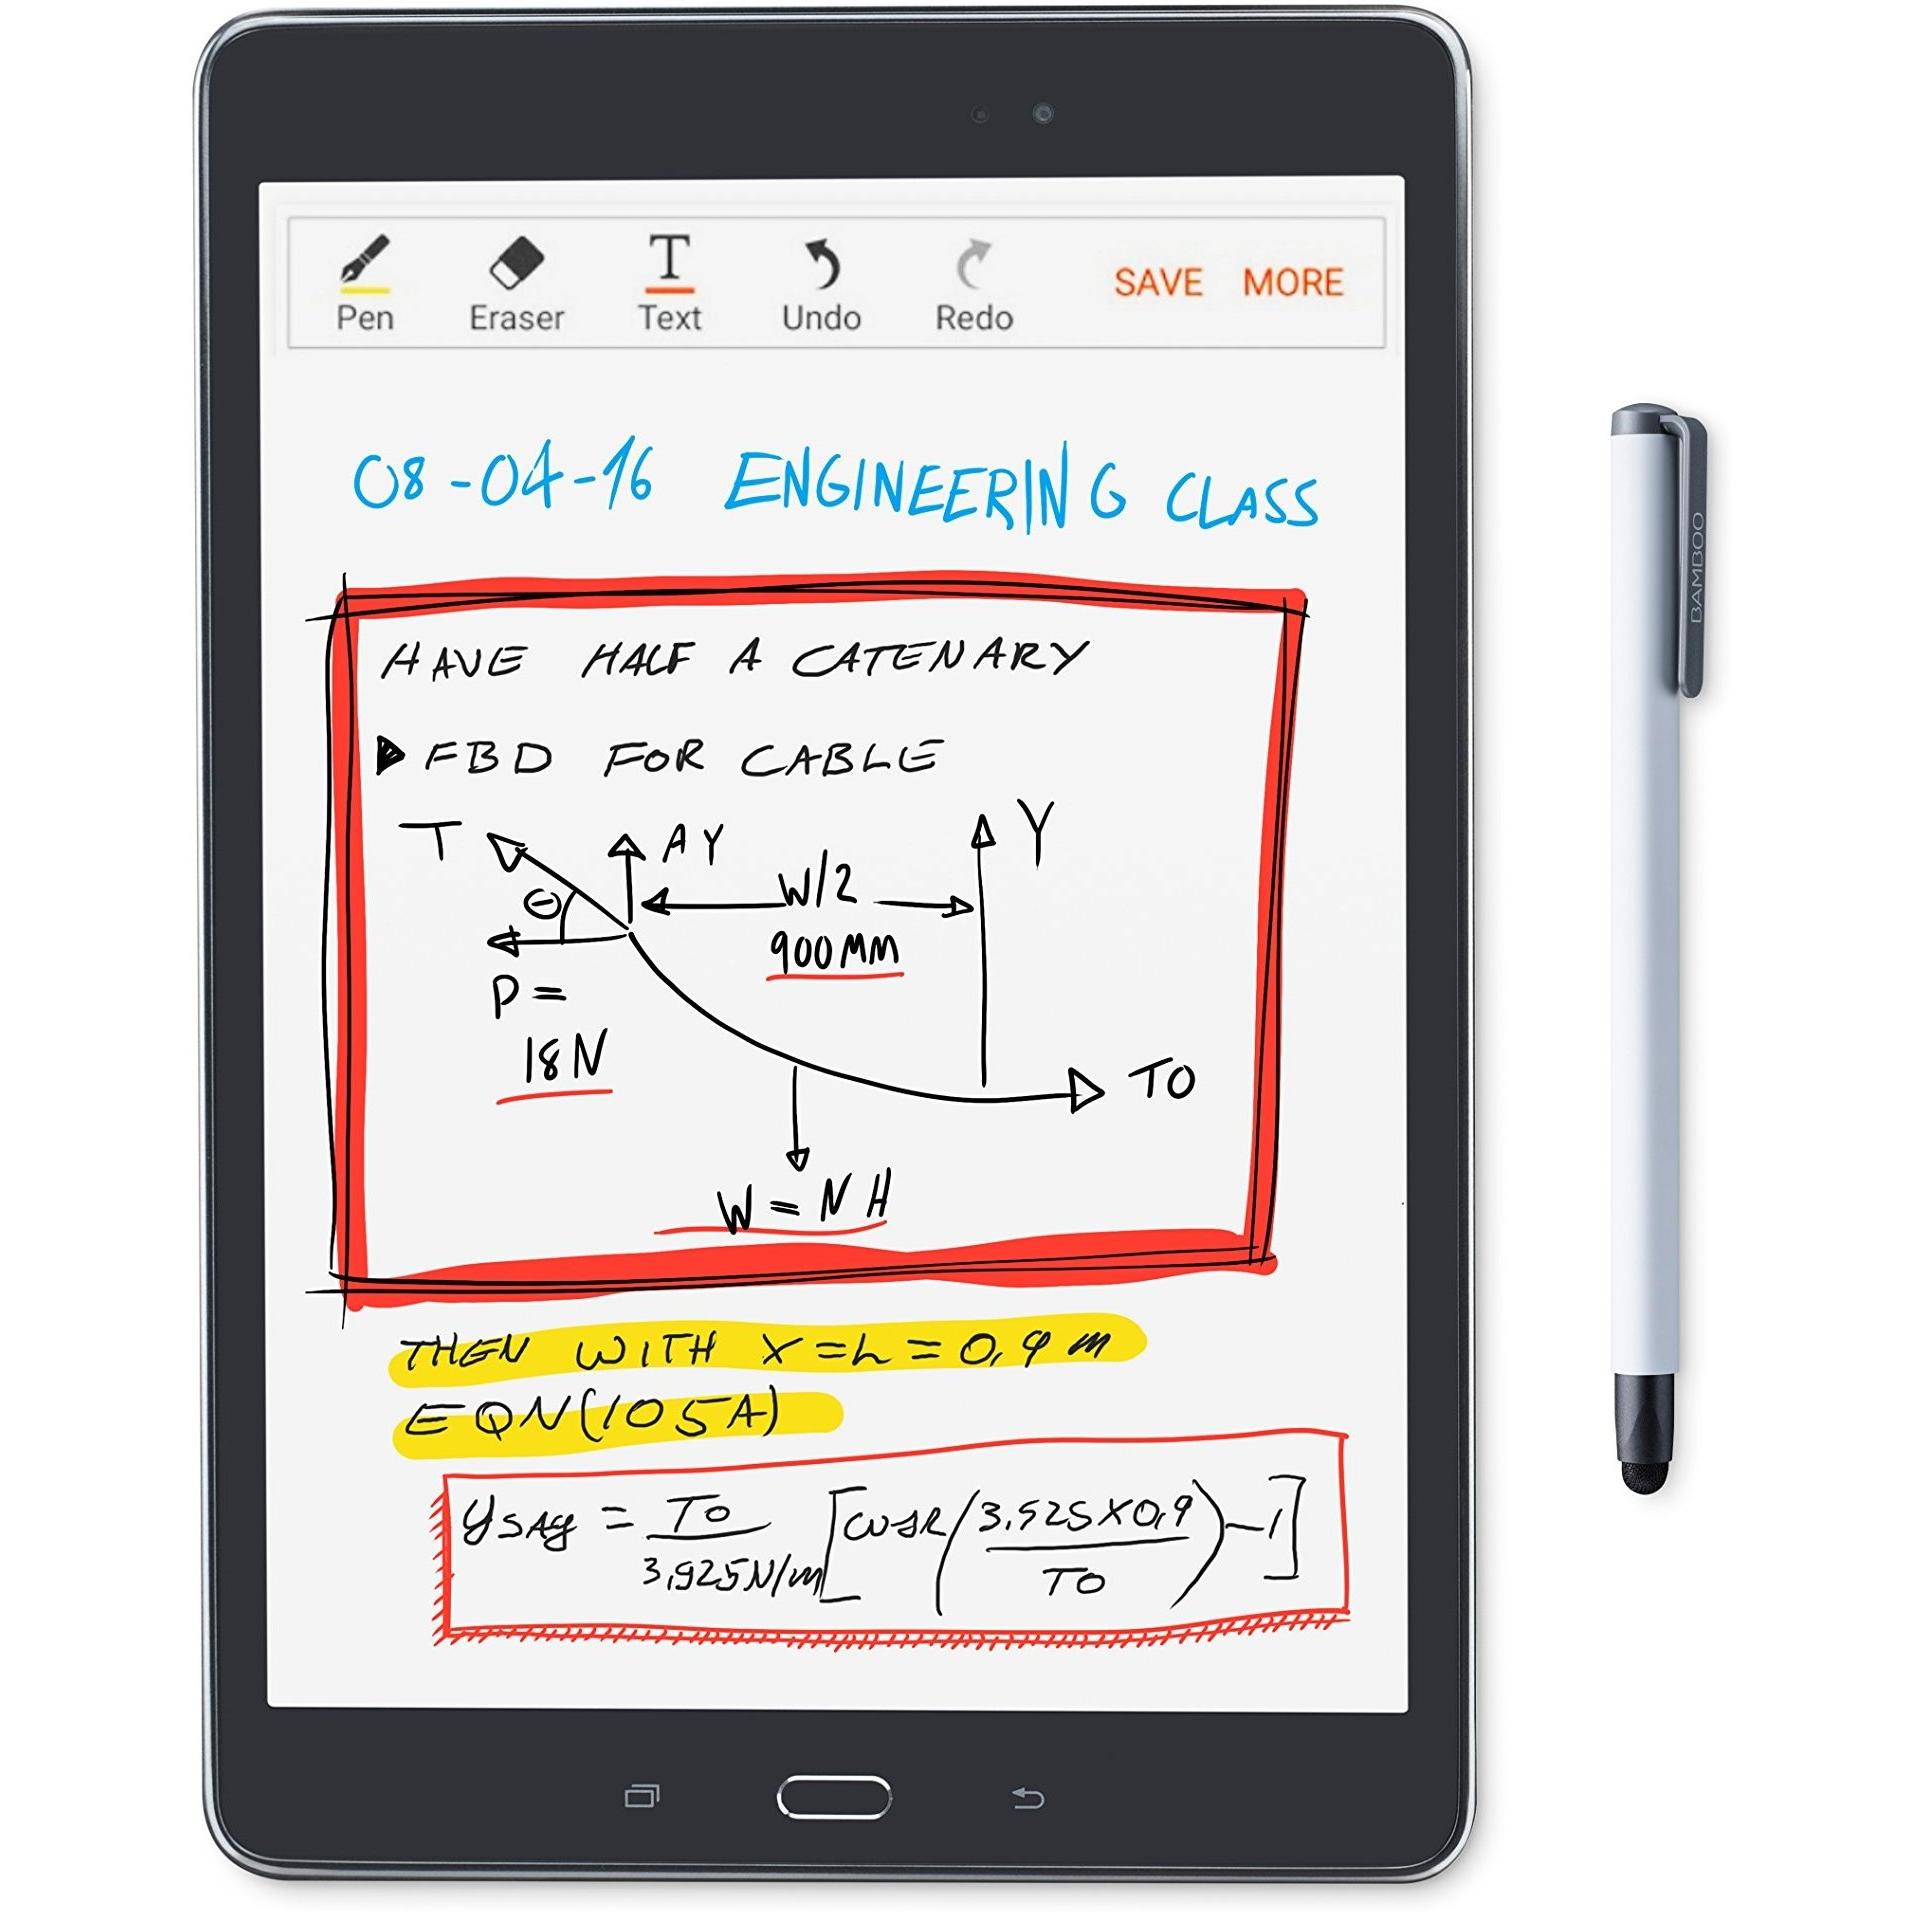 Pen Eraser Text Undo Redo SAVE MORE
08-04-16 ENGINEERING CLASS
HAVE HALF A CATENARY
FBD FOR CABLE
T AY Y
W/2
Θ
900MM
P=
18N
TO
W = NH
THEN WITH X=L=0,9m
EQN(105A)
ySAg = To / 3,925N/m [cosh(3,525X0,9 / TO)-1]
BAMBOO